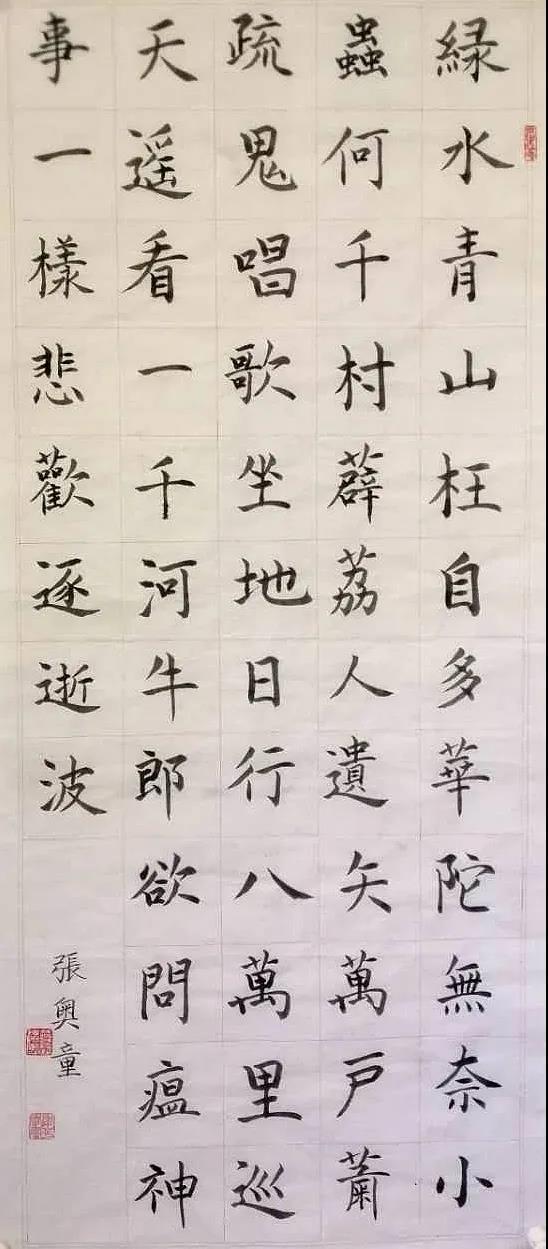 緑水青山枉自多華陀無奈小
蟲何千村薜荔人遺矢萬戶蕭
疏鬼唱歌坐地日行八萬里巡
天遥看一千河牛郎欲問瘟神
事一樣悲歡逐逝波
張奥童